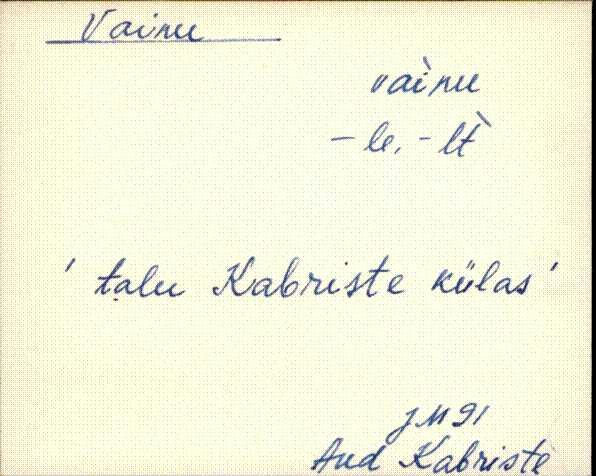 Vainu
vaìnu
-le, -lt̀
' talu Kabriste külas '
JM 91
Aud Kabriste